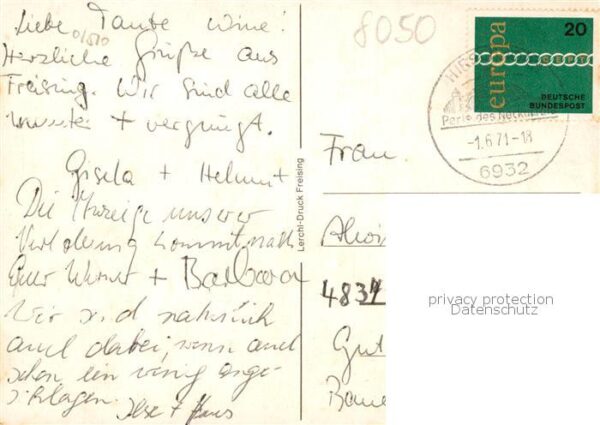 Liebe Tante Wine!
01610
Herzliche Grüße aus
Freising. Wir sind alle
munter + vergnügt.
Gisela + Helmut
Die Anzeige unserer
Verlobung kommt nach
Euer Werner + Barbara
Wir sind natürlich
auch dabei, wenn auch
schon ein wenig ange-
schlagen. Ilse + Hans
Lerchl-Druck Freising
8050
europa
CEPT
20
DEUTSCHE
BUNDESPOST
HIRS
Perle des Neckartals
-1.6.71-18
6932
Frau
Aloi
4834
Gut
Baue
privacy protection
Datenschutz